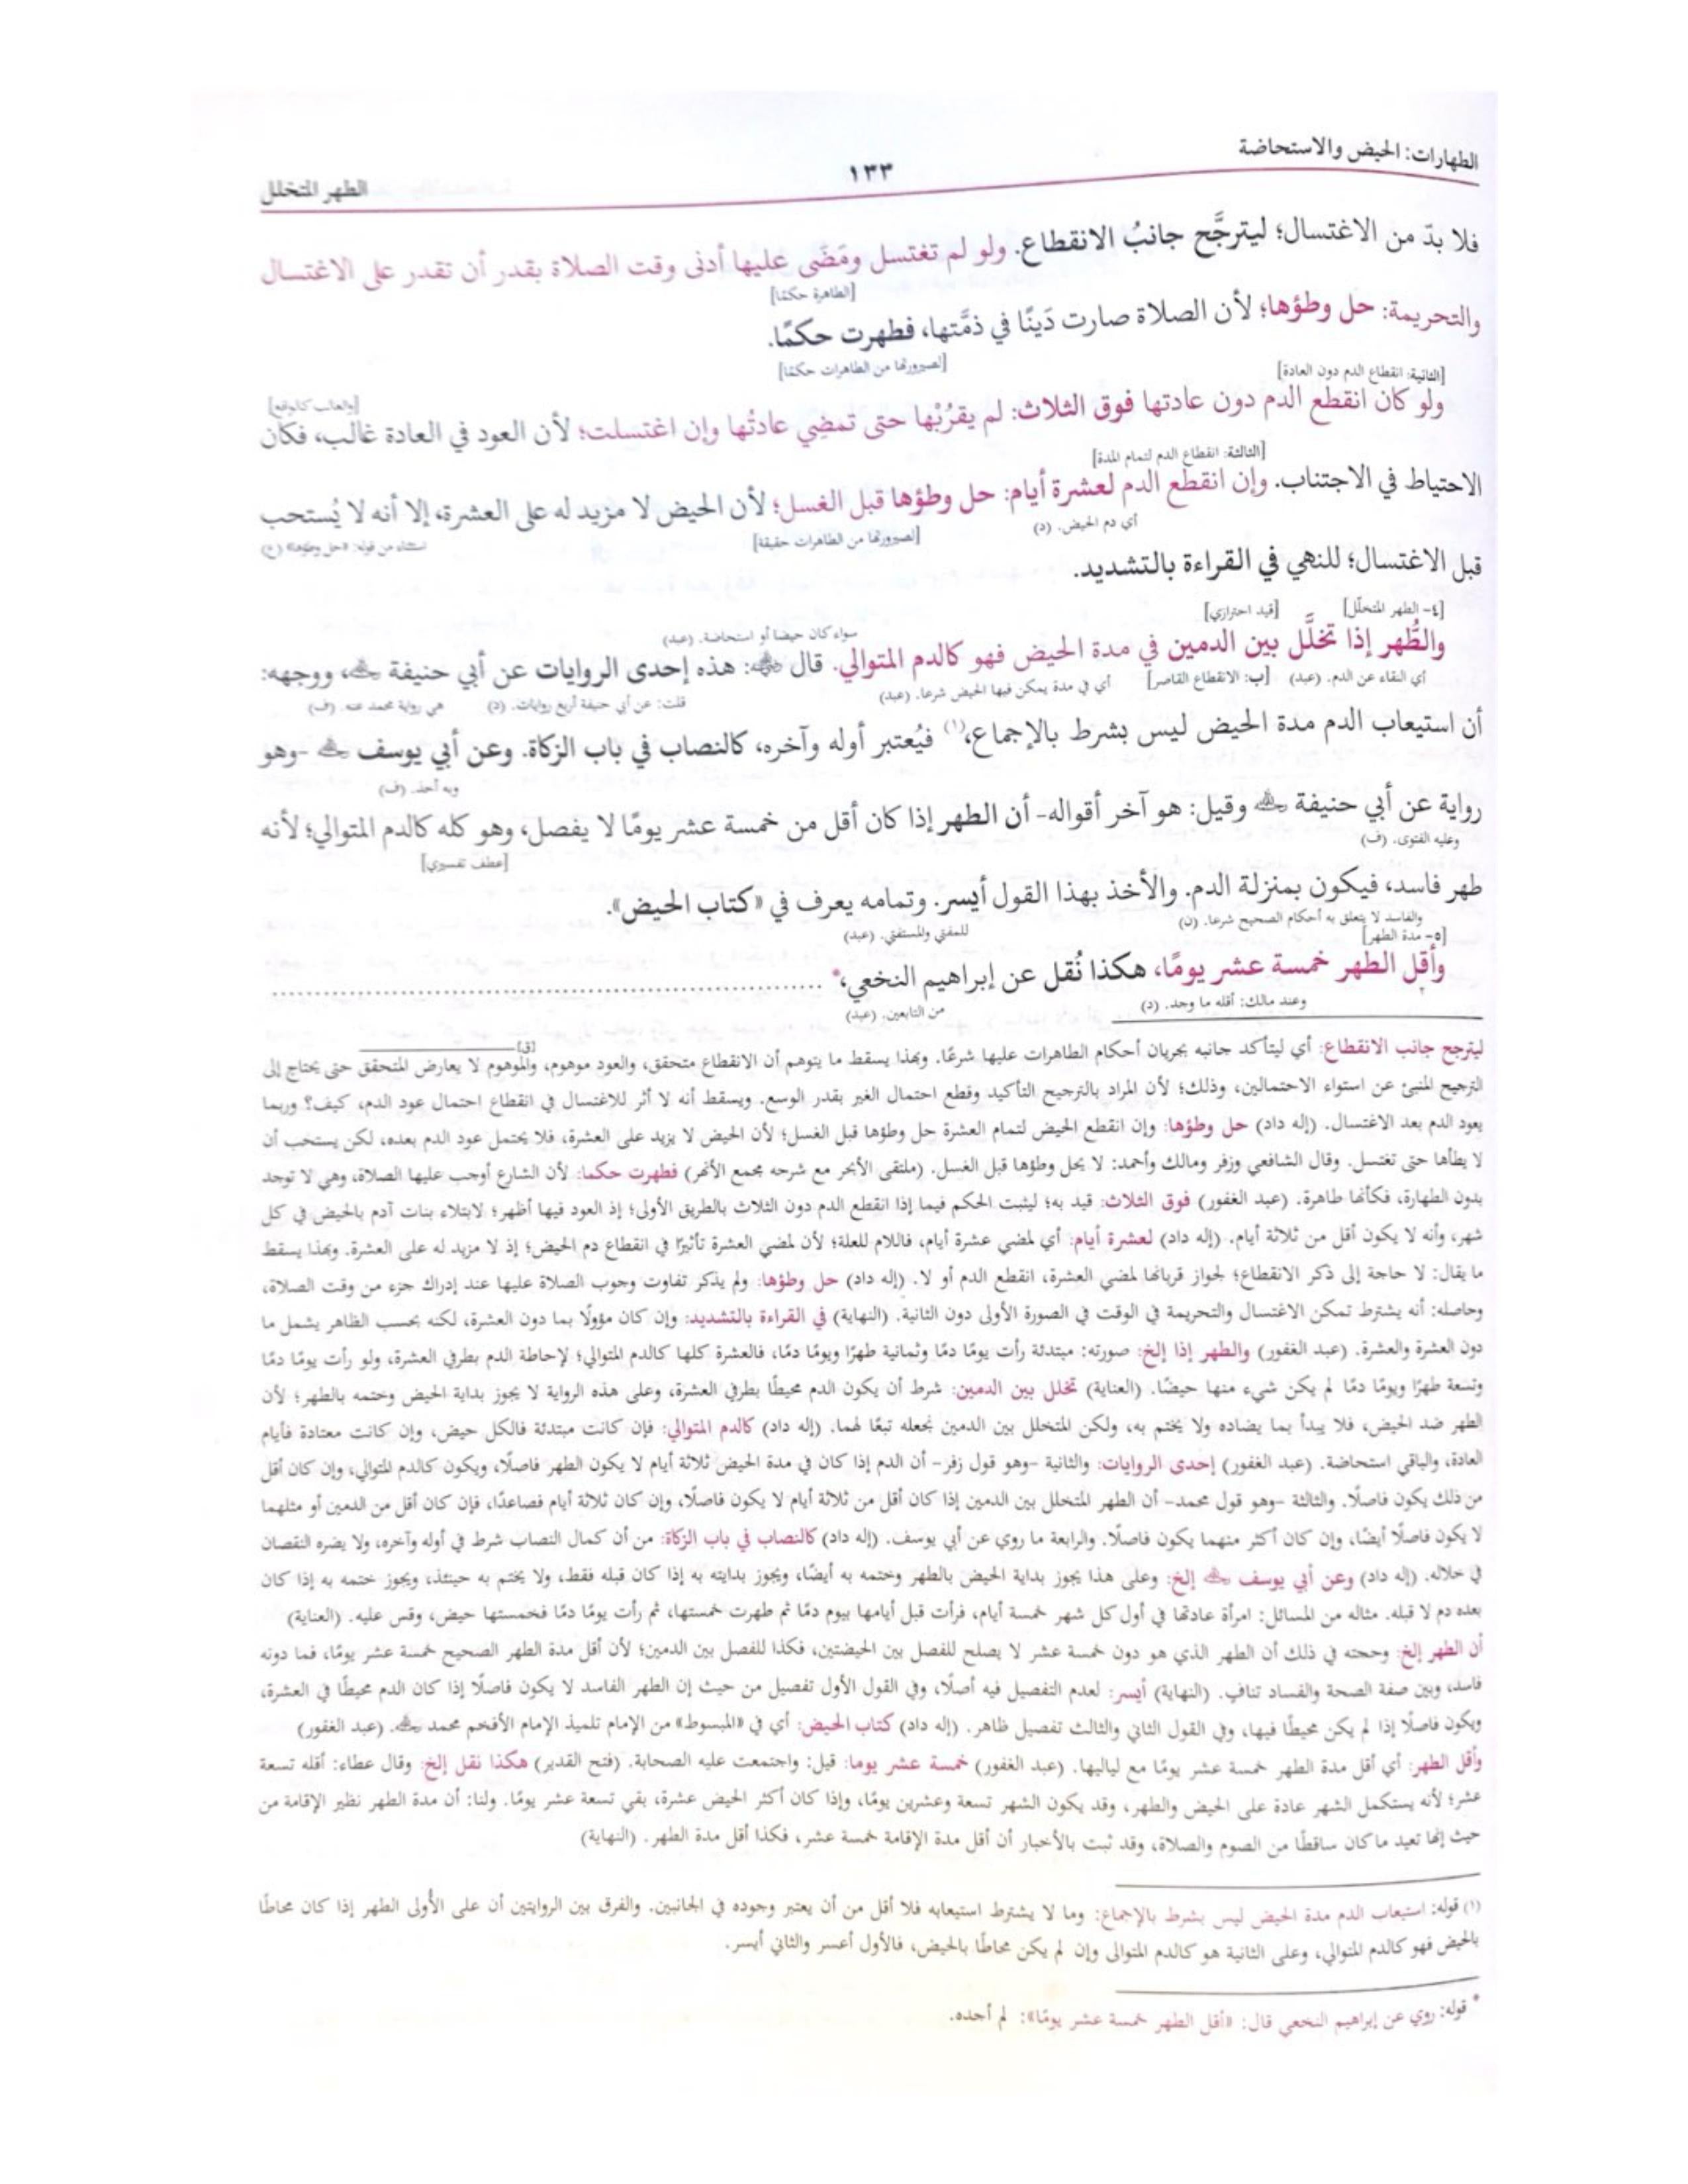 الطهارات: الحيض والاستحاضة
١٣٣
الطهر المتخلل
فلا بدّ من الاغتسال؛ ليترجَّح جانبُ الانقطاع. ولو لم تغتسل ومَضَى عليها أدنى وقت الصلاة بقدر أن تقدر على الاغتسال
[الطاهرة حكمًا]
والتحريمة: حل وطؤها؛ لأن الصلاة صارت دَينًا في ذمَّتها، فطهرت حكمًا.
[لصيرورتها من الطاهرات حكمًا]
[الثانية: انقطاع الدم دون العادة]
[والغالب كالواقع]
ولو كان انقطع الدم دون عادتها فوق الثلاث: لم يقرُبْها حتى تمضِي عادتُها وإن اغتسلت؛ لأن العود في العادة غالب، فكان
[الثالثة: انقطاع الدم لتمام المدة]
الاحتياط في الاجتناب. وإن انقطع الدم لعشرة أيام: حل وطؤها قبل الغسل؛ لأن الحيض لا مزيد له على العشرة، إلا أنه لا يُستحب
أي دم الحيض. (د)
[لصيرورتها من الطاهرات حقيقة]
استثناء من قوله: «حل وطؤها» (ع)
قبل الاغتسال؛ للنهي في القراءة بالتشديد.
[٤- الطهر المتخلّل]
[قيد احترازي]
سواء كان حيضا أو استحاضة. (عبد)
والطُّهر إذا تخلَّل بين الدمين في مدة الحيض فهو كالدم المتوالي. قال ﵁: هذه إحدى الروايات عن أبي حنيفة ﵀، ووجهه:
أي النقاء عن الدم. (عبد)
[ب: الانقطاع القاصر]
أي في مدة يمكن فيها الحيض شرعا. (عبد)
قلت: عن أبي حنيفة أربع روايات. (د)
هي رواية محمد عنه. (ف)
أن استيعاب الدم مدة الحيض ليس بشرط بالإجماع،(١) فيُعتبر أوله وآخره، كالنصاب في باب الزكاة. وعن أبي يوسف ﵀ -وهو
وبه أخذ. (ف)
رواية عن أبي حنيفة ﵀ وقيل: هو آخر أقواله- أن الطهر إذا كان أقل من خمسة عشر يومًا لا يفصل، وهو كله كالدم المتوالي؛ لأنه
وعليه الفتوى. (ف)
[عطف تفسيري]
طهر فاسد، فيكون بمنزلة الدم. والأخذ بهذا القول أيسر. وتمامه يعرف في «كتاب الحيض».
والفاسد لا يتعلق به أحكام الصحيح شرعا. (ن)
للمفتي والمستفتي. (عبد)
[٥- مدة الطهر]
وأقل الطهر خمسة عشر يومًا، هكذا نُقل عن إبراهيم النخعي،* ..........
وعند مالك: أقله ما وجد. (د)
من التابعين. (عبد)
[ق]
ليترجح جانب الانقطاع: أي ليتأكد جانبه بجريان أحكام الطاهرات عليها شرعًا. وبهذا يسقط ما يتوهم أن الانقطاع متحقق، والعود موهوم، والموهوم لا يعارض المتحقق حتى يحتاج إلى
الترجيح المنبئ عن استواء الاحتمالين، وذلك؛ لأن المراد بالترجيح التأكيد وقطع احتمال الغير بقدر الوسع. ويسقط أنه لا أثر للاغتسال في انقطاع احتمال عود الدم، كيف؟ وربما
يعود الدم بعد الاغتسال. (إله داد) حل وطؤها: وإن انقطع الحيض لتمام العشرة حل وطؤها قبل الغسل؛ لأن الحيض لا يزيد على العشرة، فلا يحتمل عود الدم بعده، لكن يستحب أن
لا يطأها حتى تغتسل. وقال الشافعي وزفر ومالك وأحمد: لا يحل وطؤها قبل الغسل. (ملتقى الأبحر مع شرحه مجمع الأنهر) فطهرت حكما: لأن الشارع أوجب عليها الصلاة، وهي لا توجد
بدون الطهارة، فكأنها طاهرة. (عبد الغفور) فوق الثلاث: قيد به؛ ليثبت الحكم فيما إذا انقطع الدم دون الثلاث بالطريق الأولى؛ إذ العود فيها أظهر؛ لابتلاء بنات آدم بالحيض في كل
شهر، وأنه لا يكون أقل من ثلاثة أيام. (إله داد) لعشرة أيام: أي لمضي عشرة أيام، فاللام للعلة؛ لأن لمضي العشرة تأثيرًا في انقطاع دم الحيض؛ إذ لا مزيد له على العشرة. وبهذا يسقط
ما يقال: لا حاجة إلى ذكر الانقطاع؛ لجواز قربانها لمضي العشرة، انقطع الدم أو لا. (إله داد) حل وطؤها: ولم يذكر تفاوت وجوب الصلاة عليها عند إدراك جزء من وقت الصلاة،
وحاصله: أنه يشترط تمكن الاغتسال والتحريمة في الوقت في الصورة الأولى دون الثانية. (النهاية) في القراءة بالتشديد: وإن كان مؤولًا بما دون العشرة، لكنه بحسب الظاهر يشمل ما
دون العشرة والعشرة. (عبد الغفور) والطهر إذا إلخ: صورته: مبتدئة رأت يومًا دمًا وثمانية طهرًا ويومًا دمًا، فالعشرة كلها كالدم المتوالي؛ لإحاطة الدم بطرفي العشرة، ولو رأت يومًا دمًا
وتسعة طهرًا ويومًا دمًا لم يكن شيء منها حيضًا. (العناية) تخلل بين الدمين: شرط أن يكون الدم محيطًا بطرفي العشرة، وعلى هذه الرواية لا يجوز بداية الحيض وختمه بالطهر؛ لأن
الطهر ضد الحيض، فلا يبدأ بما يضاده ولا يختم به، ولكن المتخلل بين الدمين نجعله تبعًا لهما. (إله داد) كالدم المتوالي: فإن كانت مبتدئة فالكل حيض، وإن كانت معتادة فأيام
العادة، والباقي استحاضة. (عبد الغفور) إحدى الروايات: والثانية -وهو قول زفر- أن الدم إذا كان في مدة الحيض ثلاثة أيام لا يكون الطهر فاصلًا، ويكون كالدم المتوالي، وإن كان أقل
من ذلك يكون فاصلًا. والثالثة -وهو قول محمد- أن الطهر المتخلل بين الدمين إذا كان أقل من ثلاثة أيام لا يكون فاصلًا، وإن كان ثلاثة أيام فصاعدًا، فإن كان أقل من الدمين أو مثلهما
لا يكون فاصلًا أيضًا، وإن كان أكثر منهما يكون فاصلًا. والرابعة ما روي عن أبي يوسف. (إله داد) كالنصاب في باب الزكاة: من أن كمال النصاب شرط في أوله وآخره، ولا يضره النقصان
في خلاله. (إله داد) وعن أبي يوسف ﵀ إلخ: وعلى هذا يجوز بداية الحيض بالطهر وختمه به أيضًا، ويجوز بدايته به إذا كان قبله فقط، ولا يختم به حينئذ، ويجوز ختمه به إذا كان
بعده دم لا قبله. مثاله من المسائل: امرأة عادتها في أول كل شهر خمسة أيام، فرأت قبل أيامها بيوم دمًا ثم طهرت خمستها، ثم رأت يومًا دمًا فخمستها حيض، وقس عليه. (العناية)
أن الطهر إلخ: وحجته في ذلك أن الطهر الذي هو دون خمسة عشر لا يصلح للفصل بين الحيضتين، فكذا للفصل بين الدمين؛ لأن أقل مدة الطهر الصحيح خمسة عشر يومًا، فما دونه
فاسد، وبين صفة الصحة والفساد تناف. (النهاية) أيسر: لعدم التفصيل فيه أصلًا، وفي القول الأول تفصيل من حيث إن الطهر الفاسد لا يكون فاصلًا إذا كان الدم محيطًا في العشرة،
ويكون فاصلًا إذا لم يكن محيطًا فيها، وفي القول الثاني والثالث تفصيل ظاهر. (إله داد) كتاب الحيض: أي في «المبسوط» من الإمام تلميذ الإمام الأفخم محمد ﵀. (عبد الغفور)
وأقل الطهر: أي أقل مدة الطهر خمسة عشر يومًا مع لياليها. (عبد الغفور) خمسة عشر يوما: قيل: واجتمعت عليه الصحابة. (فتح القدير) هكذا نقل إلخ: وقال عطاء: أقله تسعة
عشر؛ لأنه يستكمل الشهر عادة على الحيض والطهر، وقد يكون الشهر تسعة وعشرين يومًا، وإذا كان أكثر الحيض عشرة، بقي تسعة عشر يومًا. ولنا: أن مدة الطهر نظير الإقامة من
حيث إنها تعيد ما كان ساقطًا من الصوم والصلاة، وقد ثبت بالأخبار أن أقل مدة الإقامة خمسة عشر، فكذا أقل مدة الطهر. (النهاية)
(١) قوله: استيعاب الدم مدة الحيض ليس بشرط بالإجماع: وما لا يشترط استيعابه فلا أقل من أن يعتبر وجوده في الجانبين. والفرق بين الروايتين أن على الأولى الطهر إذا كان محاطًا
بالحيض فهو كالدم المتوالي، وعلى الثانية هو كالدم المتوالى وإن لم يكن محاطًا بالحيض، فالأول أعسر والثاني أيسر.
* قوله: روي عن إبراهيم النخعي قال: «أقل الطهر خمسة عشر يومًا»: لم أجده.